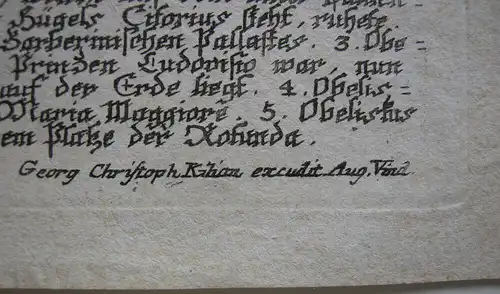 Hügels Citorius steht, ruhete
Barberinischen Pallastes. 3. Obe=
Prinzen Ludovisio war, nun
auf der Erde liegt. 4. Obelis=
Maria Maggiore. 5. Obeliskus
em Platze der Rotunda.
Georg Christoph Kilian excudit Aug. Vind.